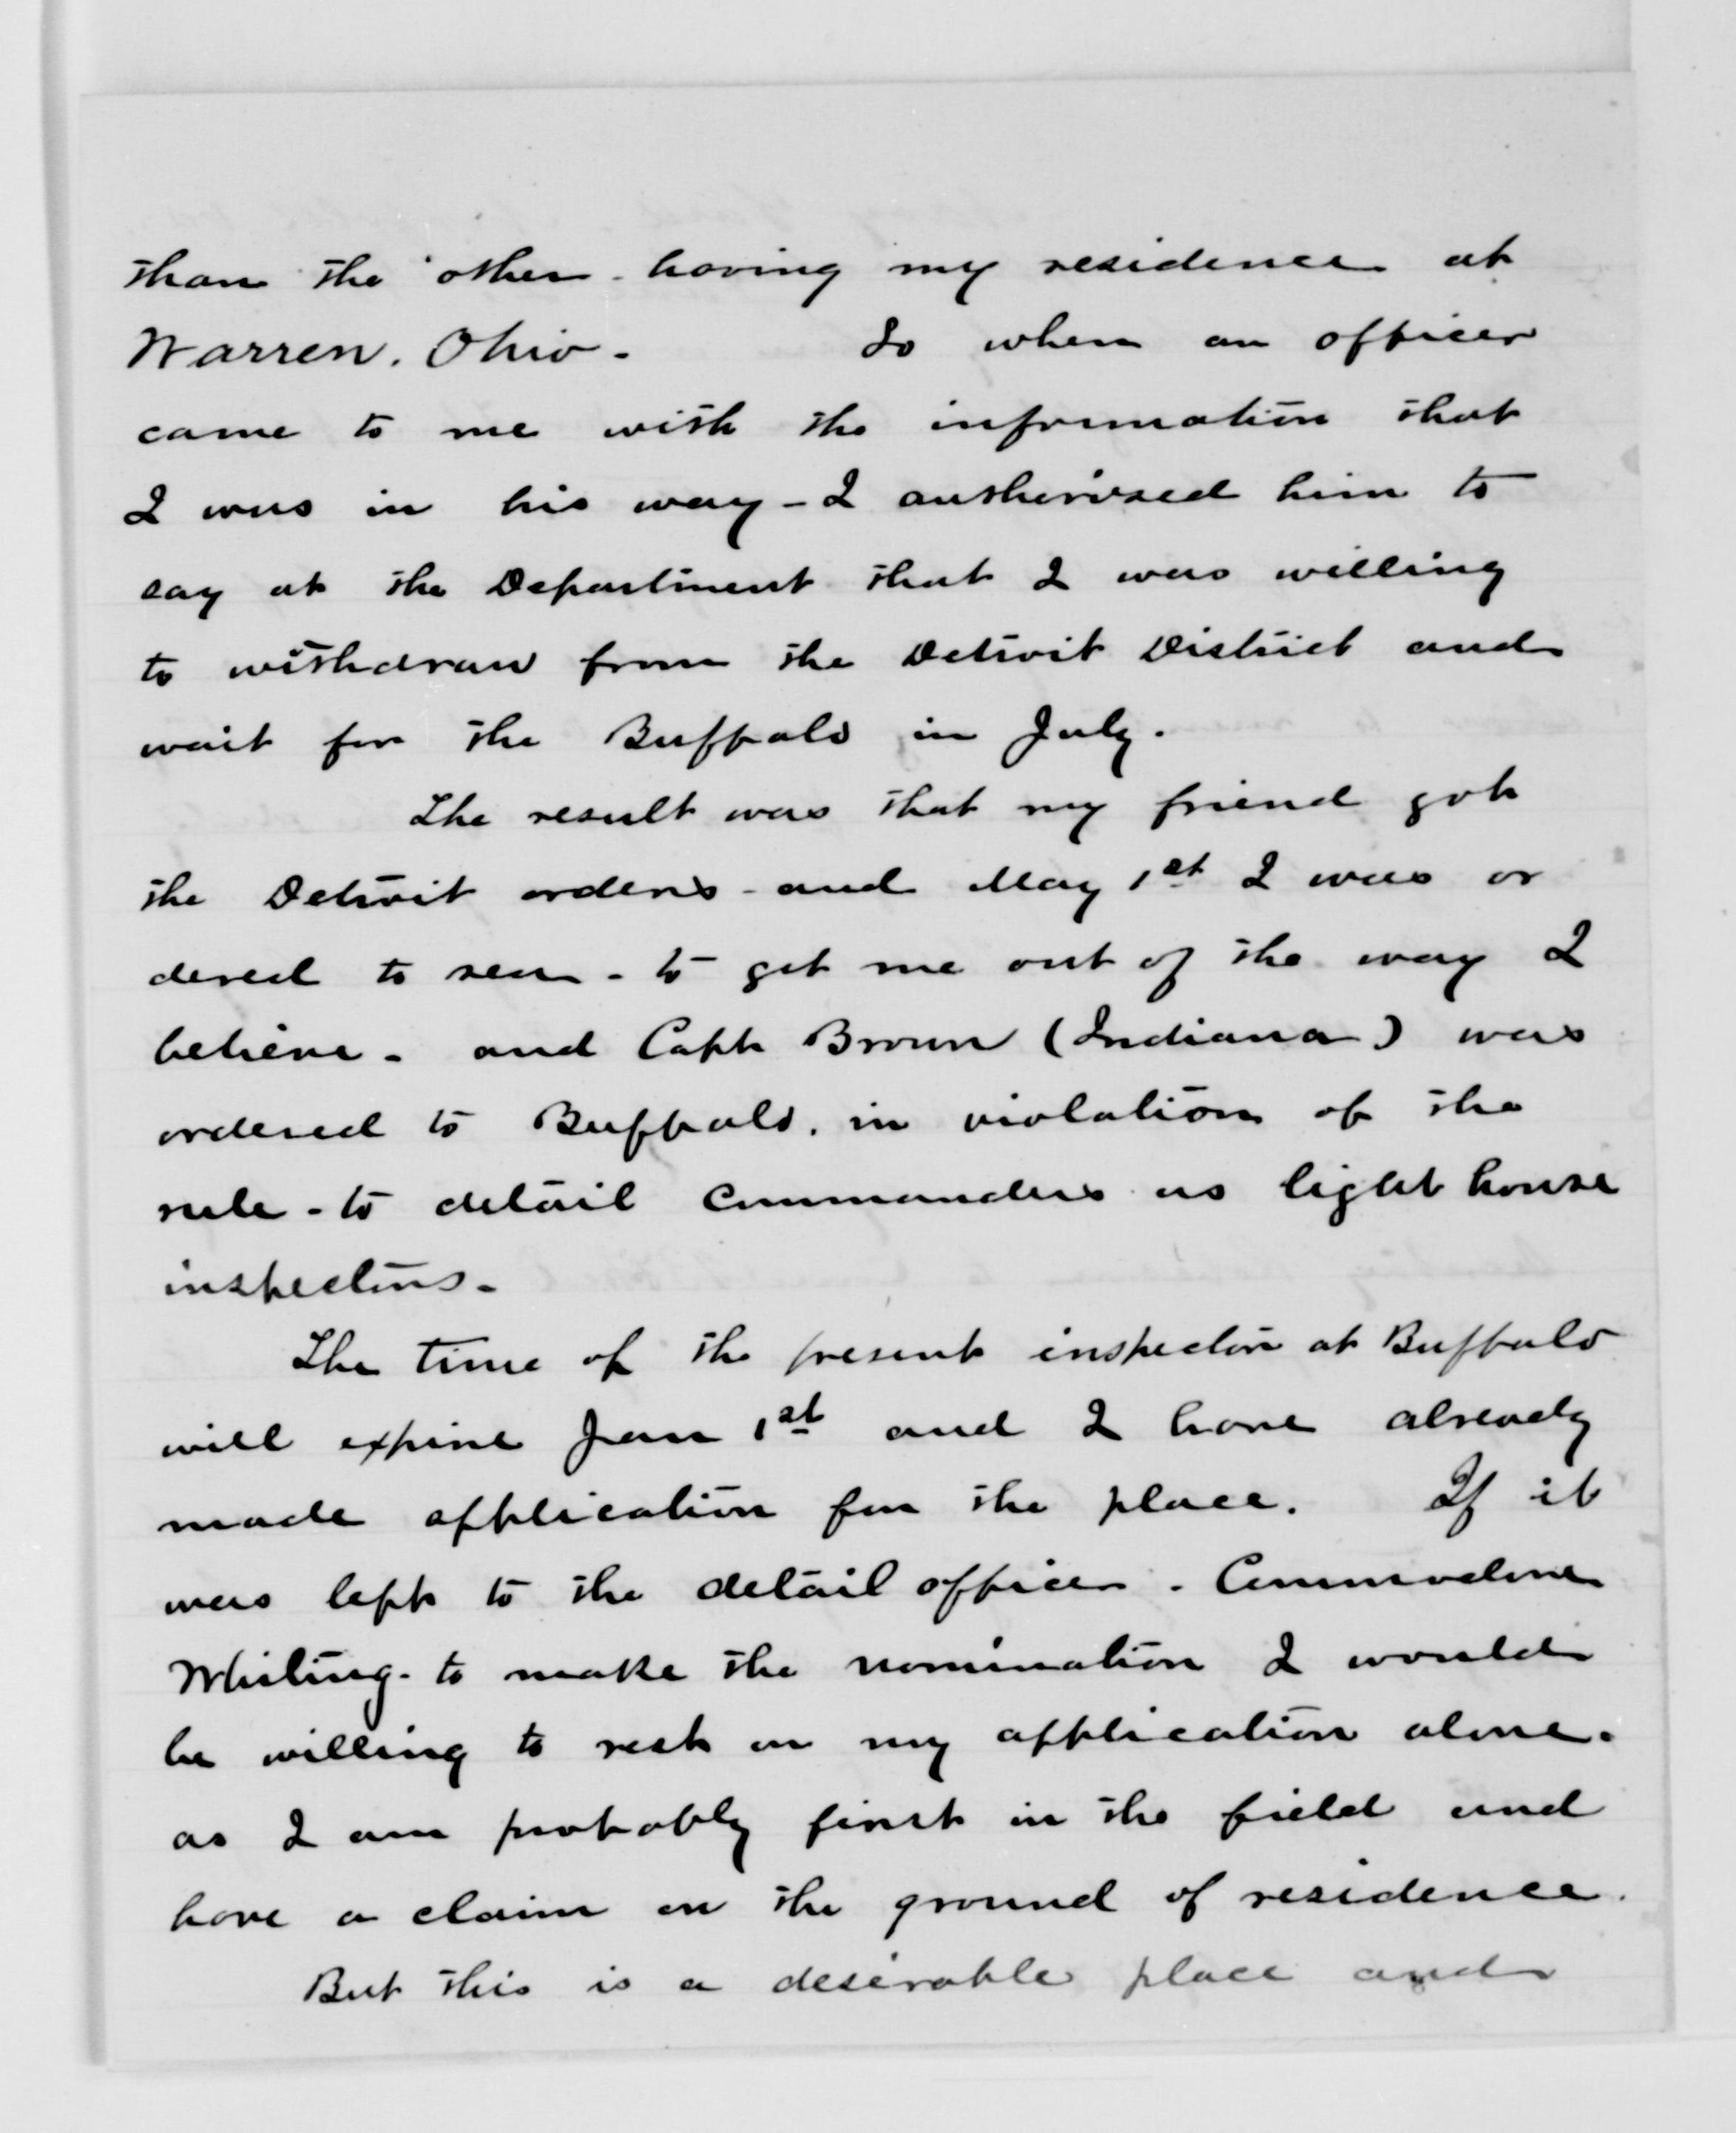 than the other - having my residence at
Warren. Ohio -    So when an officer
came to me with the information that
I was in his way - I authorised him to
say at the Department that I was willing
to withdraw from the Detroit District and
wait for the Buffalo in July.
The result was that my friend got
the Detroit orders - and May 1st I was or
dered to sea - to get me out of the way I
believe - and Capt Brown (Indiana) was
ordered to Buffalo. in violation of the
rule - to detail Commanders as light house
inspectors -
The time of the present inspector at Buffalo
will expire Jan 1st and I have already
made application for the place. If it
was left to the detail officer. Commodore
Whiting - to make the nomination I would
be willing to rest on my application alone.
as I am probably first in the field and
have a claim on the ground of residence.
But this is a desirable place and